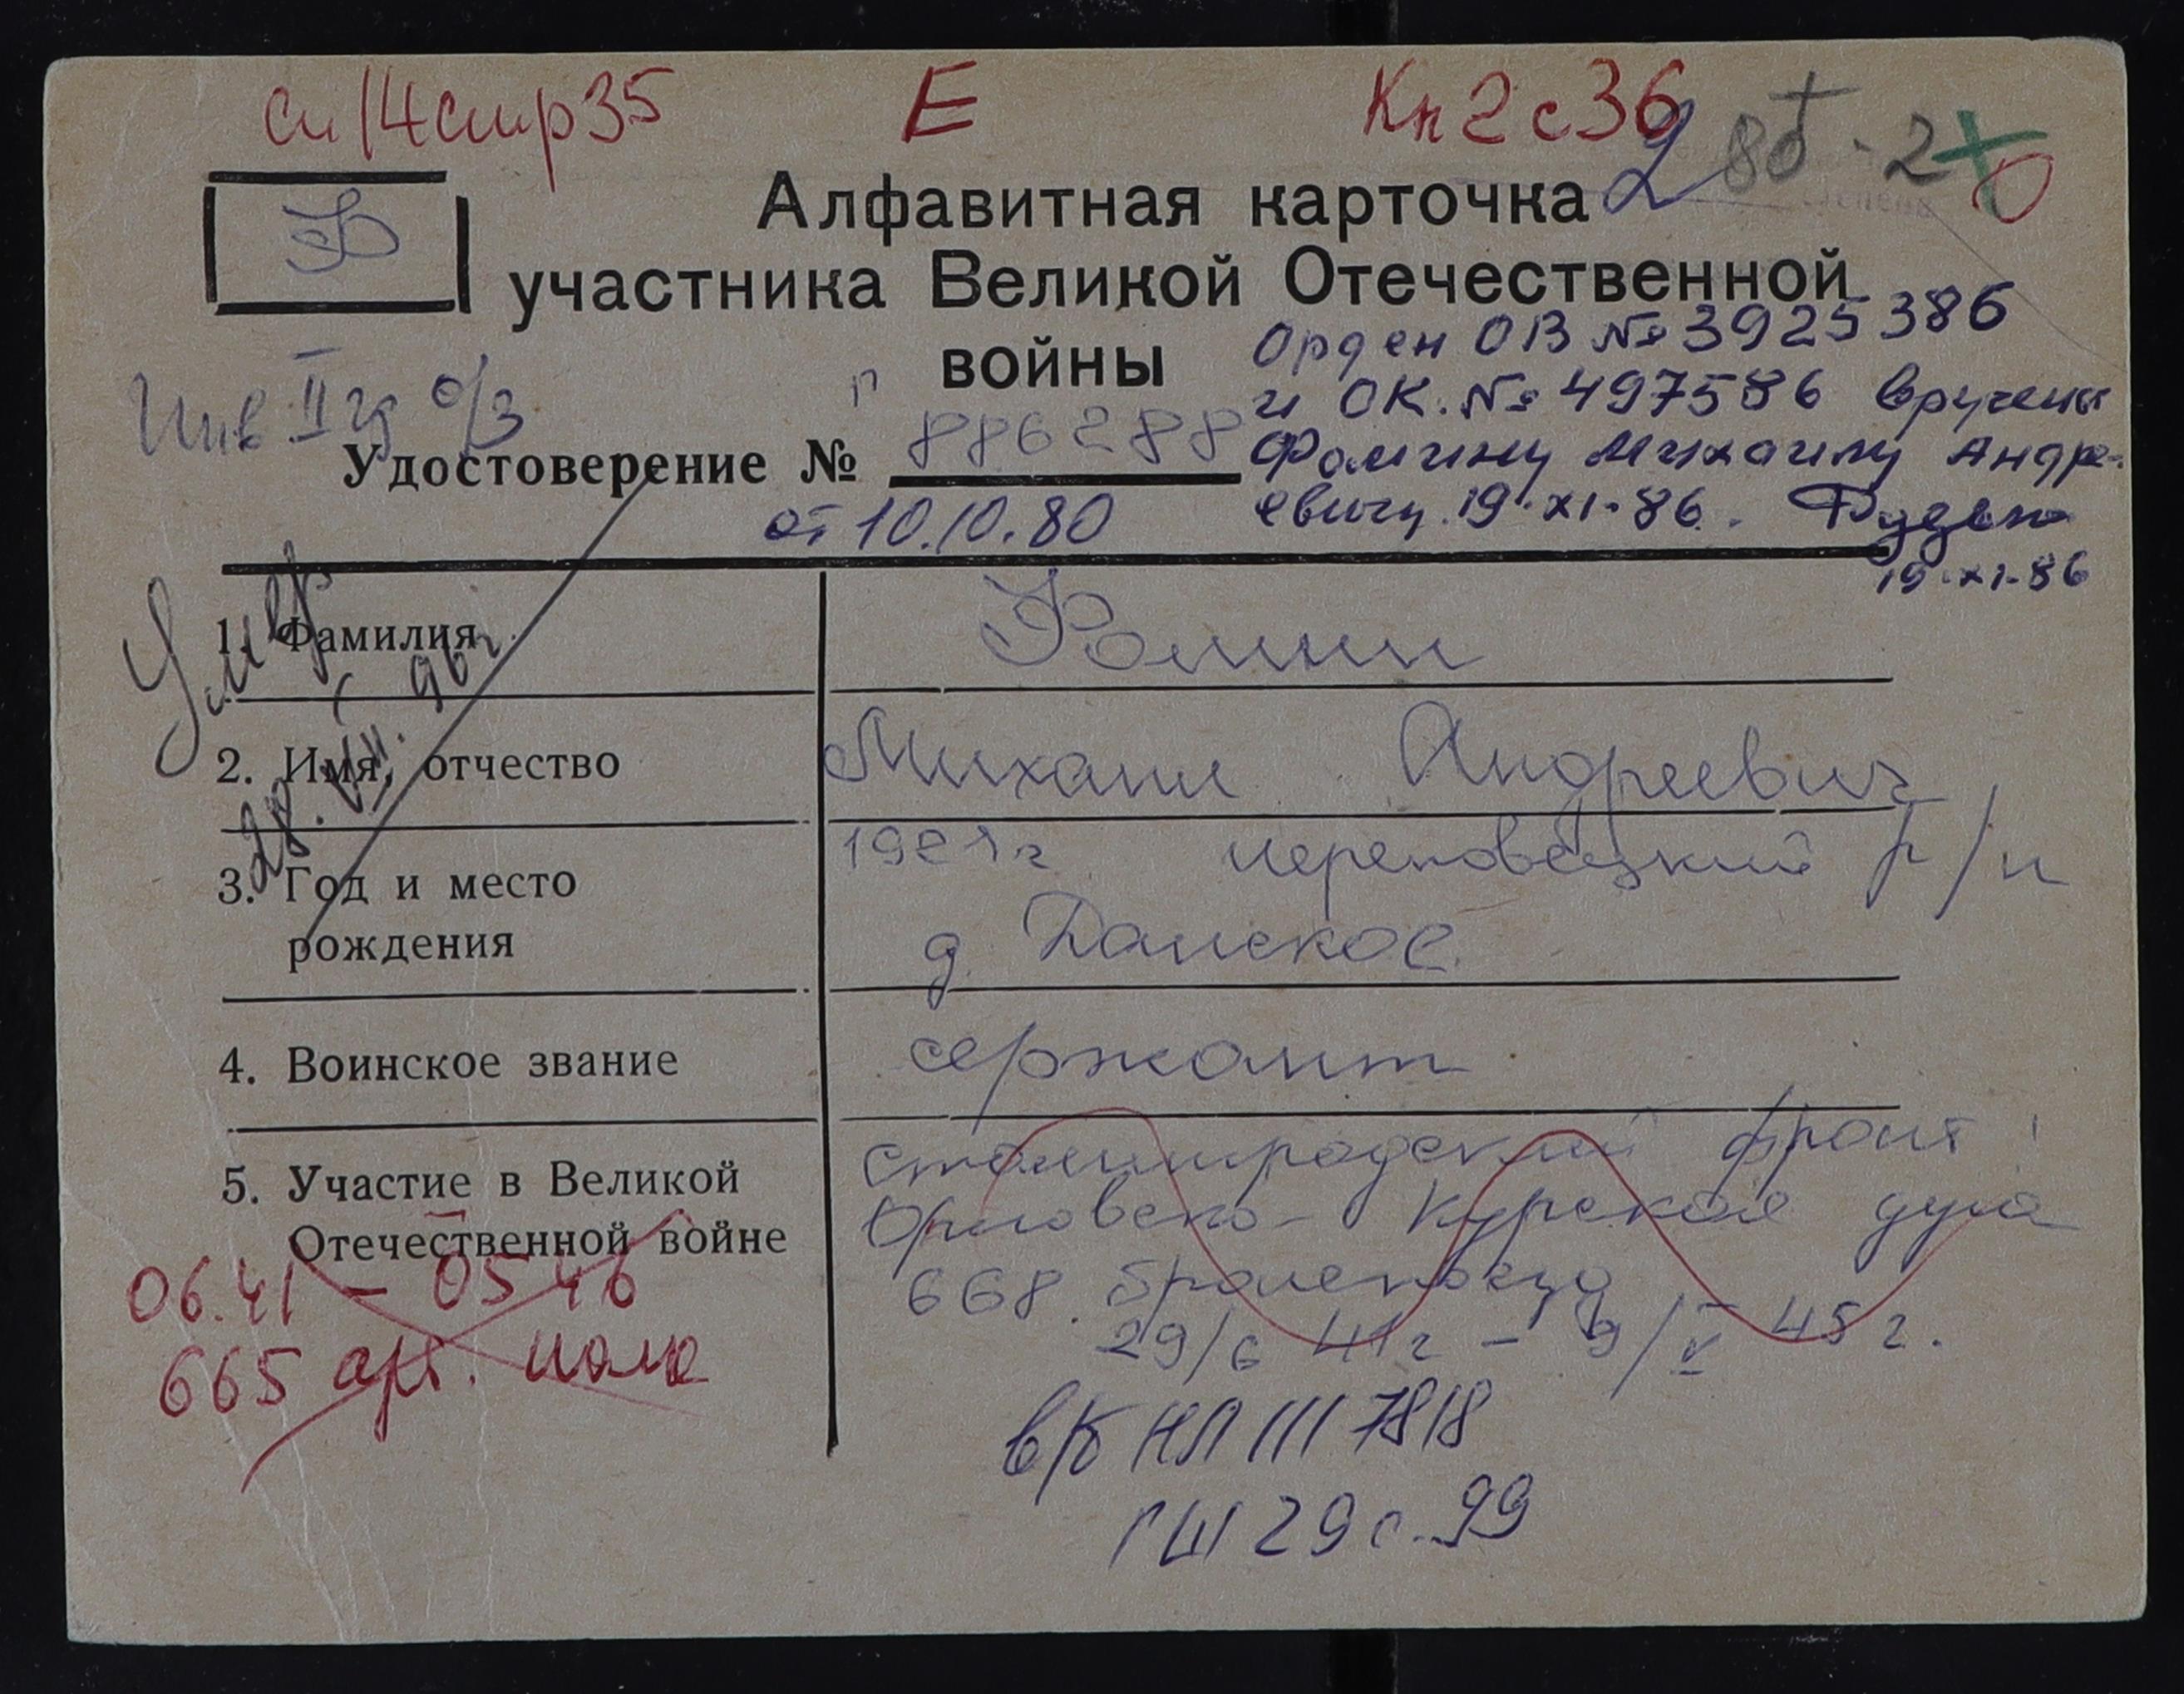 Сп 14 стр 35 Е Кн 2 с 36
Ф
Алфавитная карточка
участника Великой Отечественной
войны
Орден ОВ № 3925386
и ОК. № 497586 вручены
Фомину Михаилу Андре-
евичу 19.XI.86.
19.XI-86
Инв II гр о/з
Удостоверение № 886288
от 10.10.80
Умер
1. Фамилия Фомин
2. Имя, отчество Михаил Андреевич
3. Год и место
рождения
1921г Череповецкий р/н
д. Данское
4. Воинское звание сержант
5. Участие в Великой
Отечественной войне
Сталинградский фронт
Орловско-Курская дуга
668
29/6 41г - 9/V 45г.
06.41 - 05 46
665 арт. полк
ВК НЛ III 7818
ГШ 29 с. 99